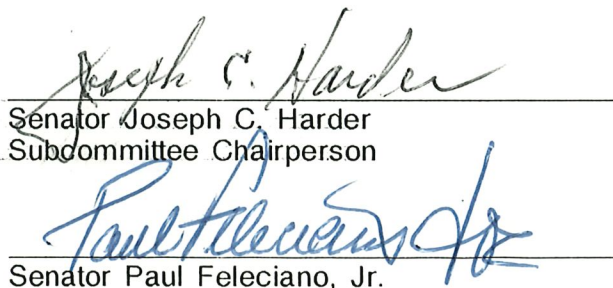 Joseph C. Harder
Senator Joseph C. Harder
Subcommittee Chairperson
Paul Feleciano Jr
Senator Paul Feleciano, Jr.